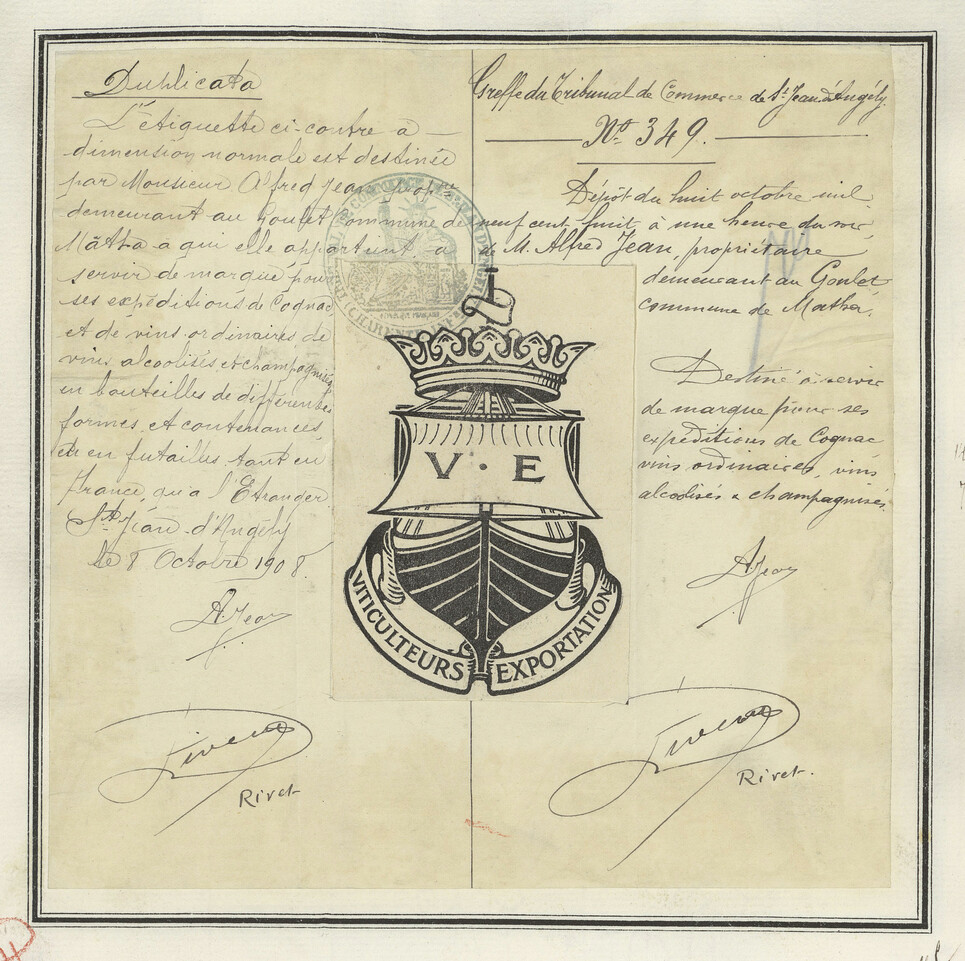 Duplicata
L'étiquette ci-contre à
dimension normale est destinée
par Monsieur Alfred Jean, propre
demeurant au Goulet Commune de
Mâtha a qui elle appartient, à
servir de marque pour
ses expéditions de Cognac
et de vins ordinaires de
vins alcoolisés et champagnisés
en bouteilles de différentes
formes et contenances
et en futailles tant en
France, qu'à l'Etranger
St Jean d'Angély
le 8 Octobre 1908.
A. Jean
Rivet
Greffe du Tribunal de Commerce de St Jean d'Angély.
No 349.
Dépôt du huit octobre mil
neuf cent huit, à une heure du soir
de M. Alfred Jean, propriétaire
demeurant au Goulet
commune de Matha.
Destiné à servir
de marque pour ses
expéditions de Cognac
vins ordinaires, vins
alcoolisés & champagnisés.
A. Jean
Rivet.
V · E
VITICULTEURS EXPORTATION